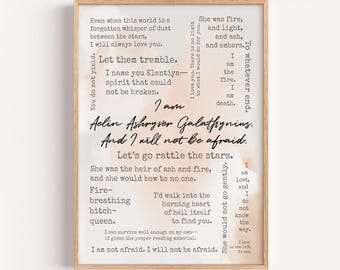 Even when this world is a
forgotten whisper of dust
between the stars,
I will always love you.
You do not yield.
Let them tremble.
I name you Elentiya—
spirit that could
not be broken.
I love you. There is no limit
to what I would do for you.
She was fire,
and light,
and ash,
and embers.
I
am
the
fire.
I
am
death.
To whatever end.
I am
Aelin Ashryver Galathynius.
And I will not be afraid.
Let's go rattle the stars.
She was the heir of ash and fire,
and she would bow to no one.
Fire-
breathing
bitch-
queen.
I'd walk into the
burning heart
of hell itself
to find you.
I can survive well enough on my own—
if given the proper reading material.
I am not afraid. I will not be afraid.
She would not go gently.
I
am
lost,
and I
do not
know
the
way.